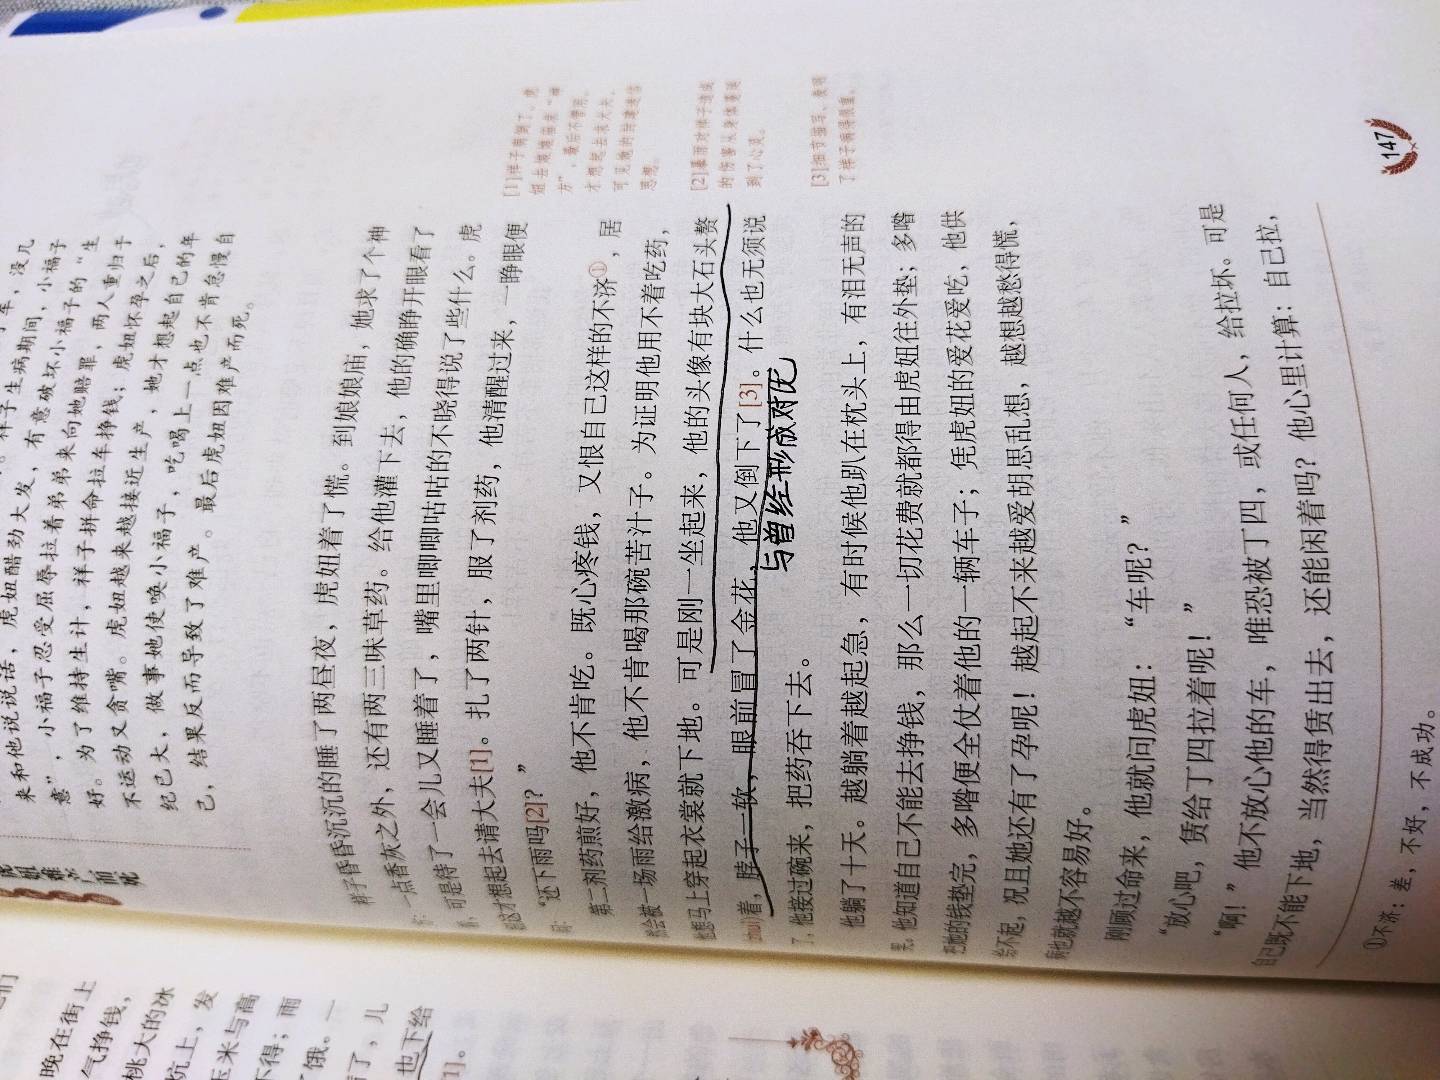 来和他说说话，虎妞醋劲大发，有意破坏小福子
意”，小福子忍受屈辱拉着弟弟来向她赔罪，两人重归于
好。为了维持生计，祥子拼命拉车挣钱；虎妞怀孕之后，
不运动又贪嘴。虎妞越来越接近生产，她才想起自己的年
纪已大，做事她使唤小福子，吃喝上一点也不肯怠慢自
己，结果反而导致了难产。最后虎妞因难产而死。
祥子昏昏沉沉的睡了两昼夜，虎妞着了慌。到娘娘庙，她求了个神
一点香灰之外，还有两三味草药。给他灌下去，他的确睁开眼看了
可是待了一会儿又睡着了，嘴里唧唧咕咕的不晓得说了些什么。虎
妞这才想起去请大夫[1]。扎了两针，服了剂药，他清醒过来，一睁眼便
问：“还下雨吗[2]？”
第二剂药煎好，他不肯吃。既心疼钱，又恨自己这样的不济①，居
然会被一场雨给激病，他不肯喝那碗苦汁子。为证明他用不着吃药，
他想马上穿起衣裳就下地。可是刚一坐起来，他的头像有块大石头赘
(zhuì)着，脖子一软，眼前冒了金花，他又倒下了[3]。什么也无须说
了，他接过碗来，把药吞下去。
他躺了十天。越躺着越起急，有时候他趴在枕头上，有泪无声的
哭。他知道自己不能去挣钱，那么一切花费就都得由虎妞往外垫；多喒
把她的钱垫完，多喒便全仗着他的一辆车子；凭虎妞的爱花爱吃，他供
给不起，况且她还有了孕呢！越起不来越爱胡思乱想，越想越愁得慌，
病也就越不容易好。
刚顾过命来，他就问虎妞：“车呢？”
“放心吧，赁给丁四拉着呢！”
“啊！”他不放心他的车，唯恐被丁四，或任何人，给拉坏。可是
自己既不能下地，当然得赁出去，还能闲着吗？他心里计算：自己拉，
与曾经形成对比
[1]祥子病倒了，虎
妞去娘娘庙求“神
方”，最后不管用，
才想起去求大夫。
可见她的封建迷信
思想。
[2]暴雨对祥子造成
的伤害从身体蔓延
到了心灵。
[3]细节描写，表明
了祥子病得很重。
①不济：差，不好，不成功。
147
晚在街上
气挣钱，
桃大的冰
炕上，发
玉米与高
不得；雨
了俄。一
病了，儿
也下给
[1]。